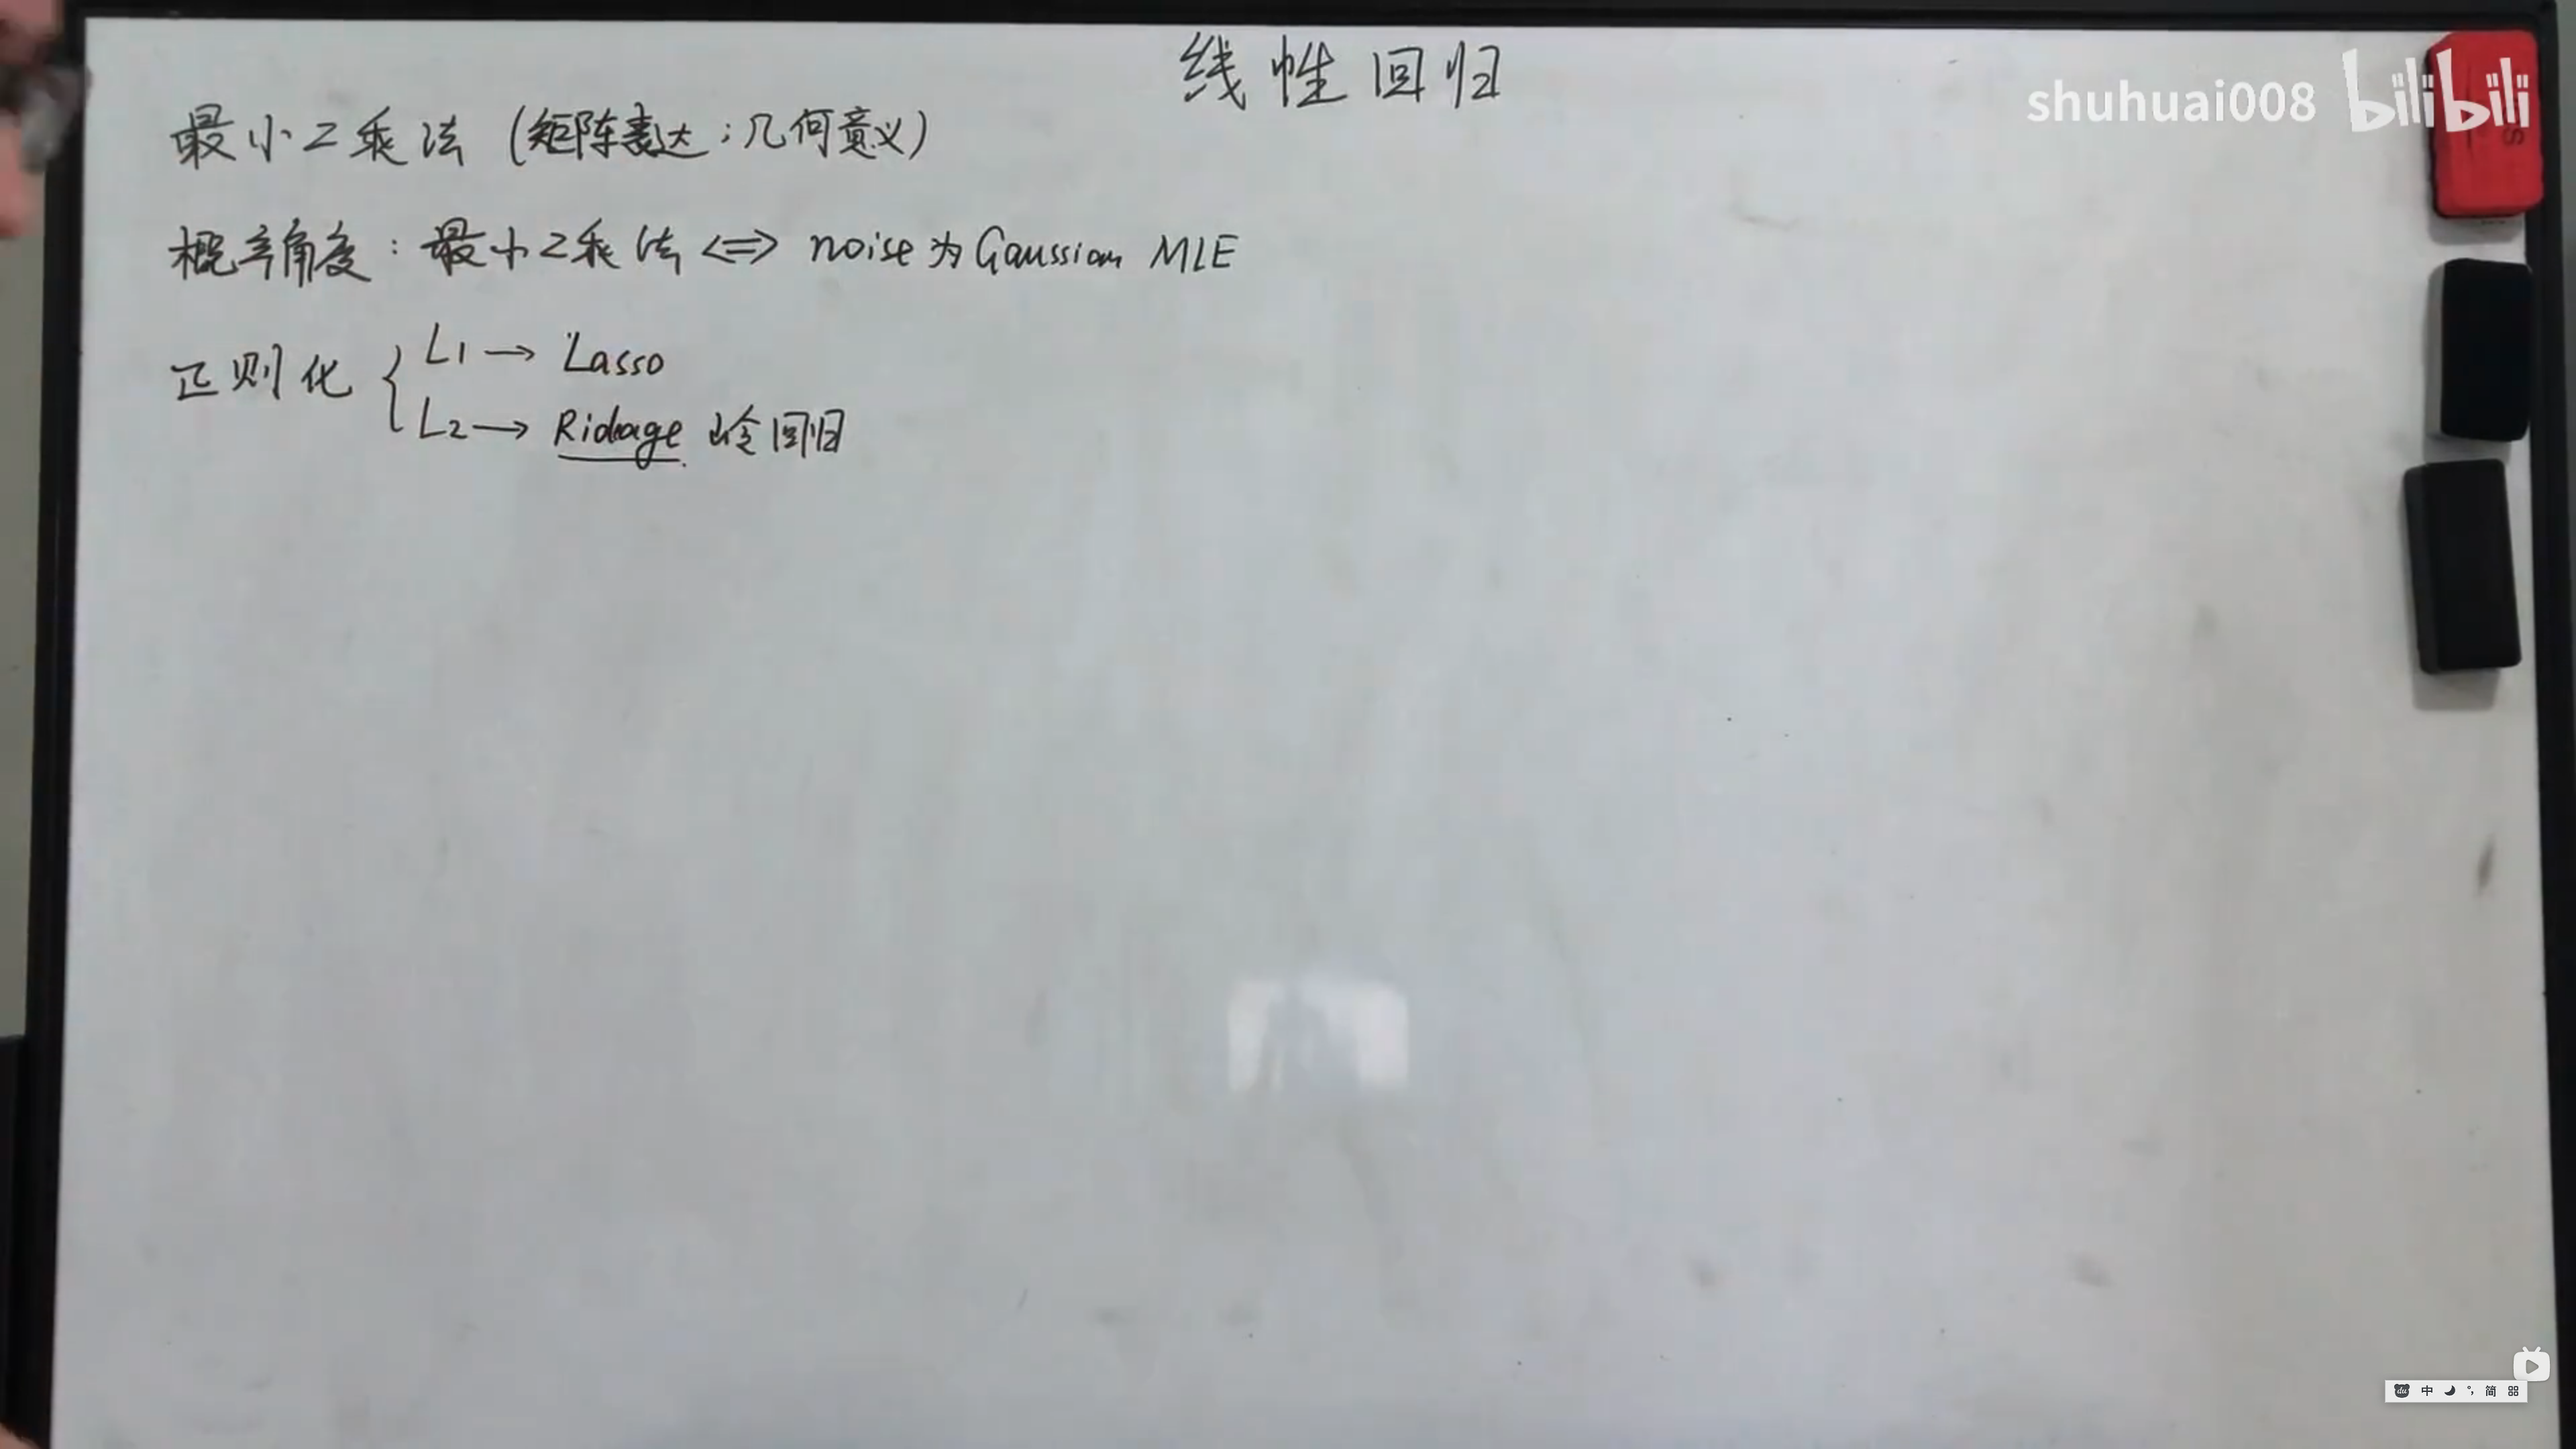 线性回归
shuhuai008 bilibili
最小二乘法 (矩阵表达;几何意义)
概率角度:最小二乘法 <=> noise为Gaussian MLE
正则化 { L1 → Lasso
L2 → Ridage 岭回归
中 简